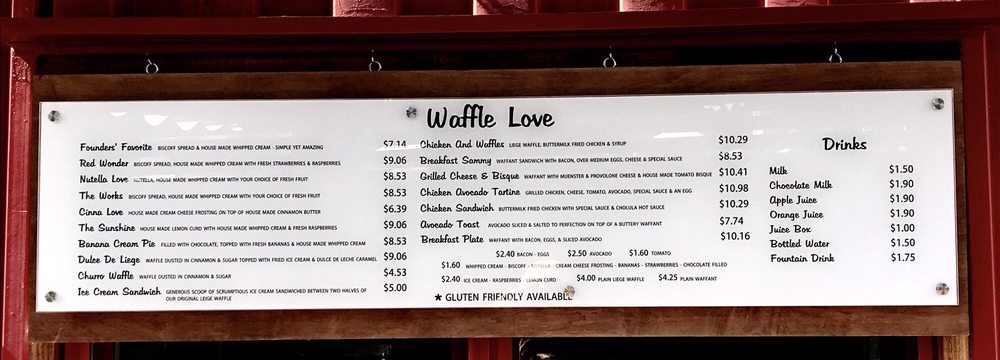 Waffle Love
Founders' Favorite BISCOFF SPREAD & HOUSE MADE WHIPPED CREAM - SIMPLE YET AMAZING $7.14
Red Wonder BISCOFF SPREAD, HOUSE MADE WHIPPED CREAM WITH FRESH STRAWBERRIES & RASPBERRIES $9.06
Nutella Love NUTELLA, HOUSE MADE WHIPPED CREAM WITH YOUR CHOICE OF FRESH FRUIT $8.53
The Works BISCOFF SPREAD, HOUSE MADE WHIPPED CREAM WITH YOUR CHOICE OF FRESH FRUIT $8.53
Cinna Love HOUSE MADE CREAM CHEESE FROSTING ON TOP OF HOUSE MADE CINNAMON BUTTER $6.39
The Sunshine HOUSE MADE LEMON CURD WITH HOUSE MADE WHIPPED CREAM & FRESH RASPBERRIES $9.06
Banana Cream Pie FILLED WITH CHOCOLATE, TOPPED WITH FRESH BANANAS & HOUSE MADE WHIPPED CREAM $8.53
Dulce De Liege WAFFLE DUSTED IN CINNAMON & SUGAR TOPPED WITH FRIED ICE CREAM & DULCE DE LECHE CARAMEL $9.06
Churro Waffle WAFFLE DUSTED IN CINNAMON & SUGAR $4.53
Ice Cream Sandwich GENEROUS SCOOP OF SCRUMPTIOUS ICE CREAM SANDWICHED BETWEEN TWO HALVES OF $5.00
OUR ORIGINAL LEIGE WAFFLE
Chicken And Waffles LIEGE WAFFLE, BUTTERMILK FRIED CHICKEN & SYRUP $10.29
Breakfast Sammy WAFFANT SANDWICH WITH BACON, OVER MEDIUM EGGS, CHEESE & SPECIAL SAUCE $8.53
Grilled Cheese & Bisque WAFFANT WITH MUENSTER & PROVOLONE CHEESE & HOUSE MADE TOMATO BISQUE $10.41
Chicken Avocado Tartine GRILLED CHICKEN, CHEESE, TOMATO, AVOCADO, SPECIAL SAUCE & AN EGG $10.98
Chicken Sandwich BUTTERMILK FRIED CHICKEN WITH SPECIAL SAUCE & CHOLULA HOT SAUCE $10.29
Avocado Toast AVOCADO SLICED & SALTED TO PERFECTION ON TOP OF A BUTTERY WAFFANT $7.74
Breakfast Plate WAFFANT WITH BACON, EGGS, & SLICED AVOCADO $10.16
$2.40 BACON - EGGS $2.50 AVOCADO $1.60 TOMATO
$1.60 WHIPPED CREAM - BISCOFF - NUTELLA - CREAM CHEESE FROSTING - BANANAS - STRAWBERRIES - CHOCOLATE FILLED
$2.40 ICE CREAM - RASPBERRIES LEMON CURD $4.00 PLAIN LIEGE WAFFLE $4.25 PLAIN WAFFANT
* GLUTEN FRIENDLY AVAILABLE
Drinks
Milk $1.50
Chocolate Milk $1.90
Apple Juice $1.90
Orange Juice $1.90
Juice Box $1.00
Bottled Water $1.50
Fountain Drink $1.75